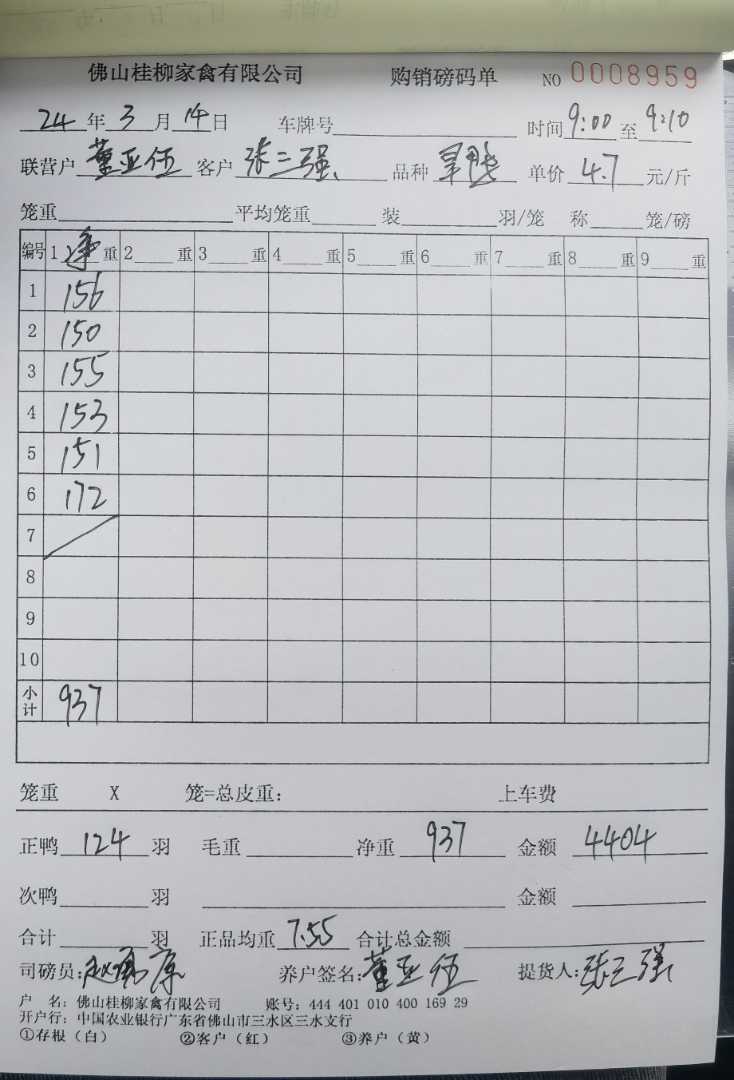 佛山桂柳家禽有限公司 购销磅码单 NO 0008959
24年3月14日 车牌号 时间9:00至9:10
联营户董亚伍 客户张三强 品种 单价4.7元/斤
笼重 平均笼重 装 羽/笼 称 笼/磅
编号 1净重 2 重 3 重 4 重 5 重 6 重 7 重 8 重 9 重
1 156
2 150
3 155
4 153
5 151
6 172
7
8
9
10
小计 937
笼重 X 笼=总皮重: 上车费
正鸭124羽 毛重 净重937 金额4404
次鸭 羽 金额
合计 羽 正品均重7.55 合计总金额
司磅员: 养户签名:董亚伍 提货人:张三强
户 名: 佛山桂柳家禽有限公司 账号: 444 401 010 400 169 29
开户行: 中国农业银行广东省佛山市三水区三水支行
①存根(白) ②客户(红) ③养户(黄)